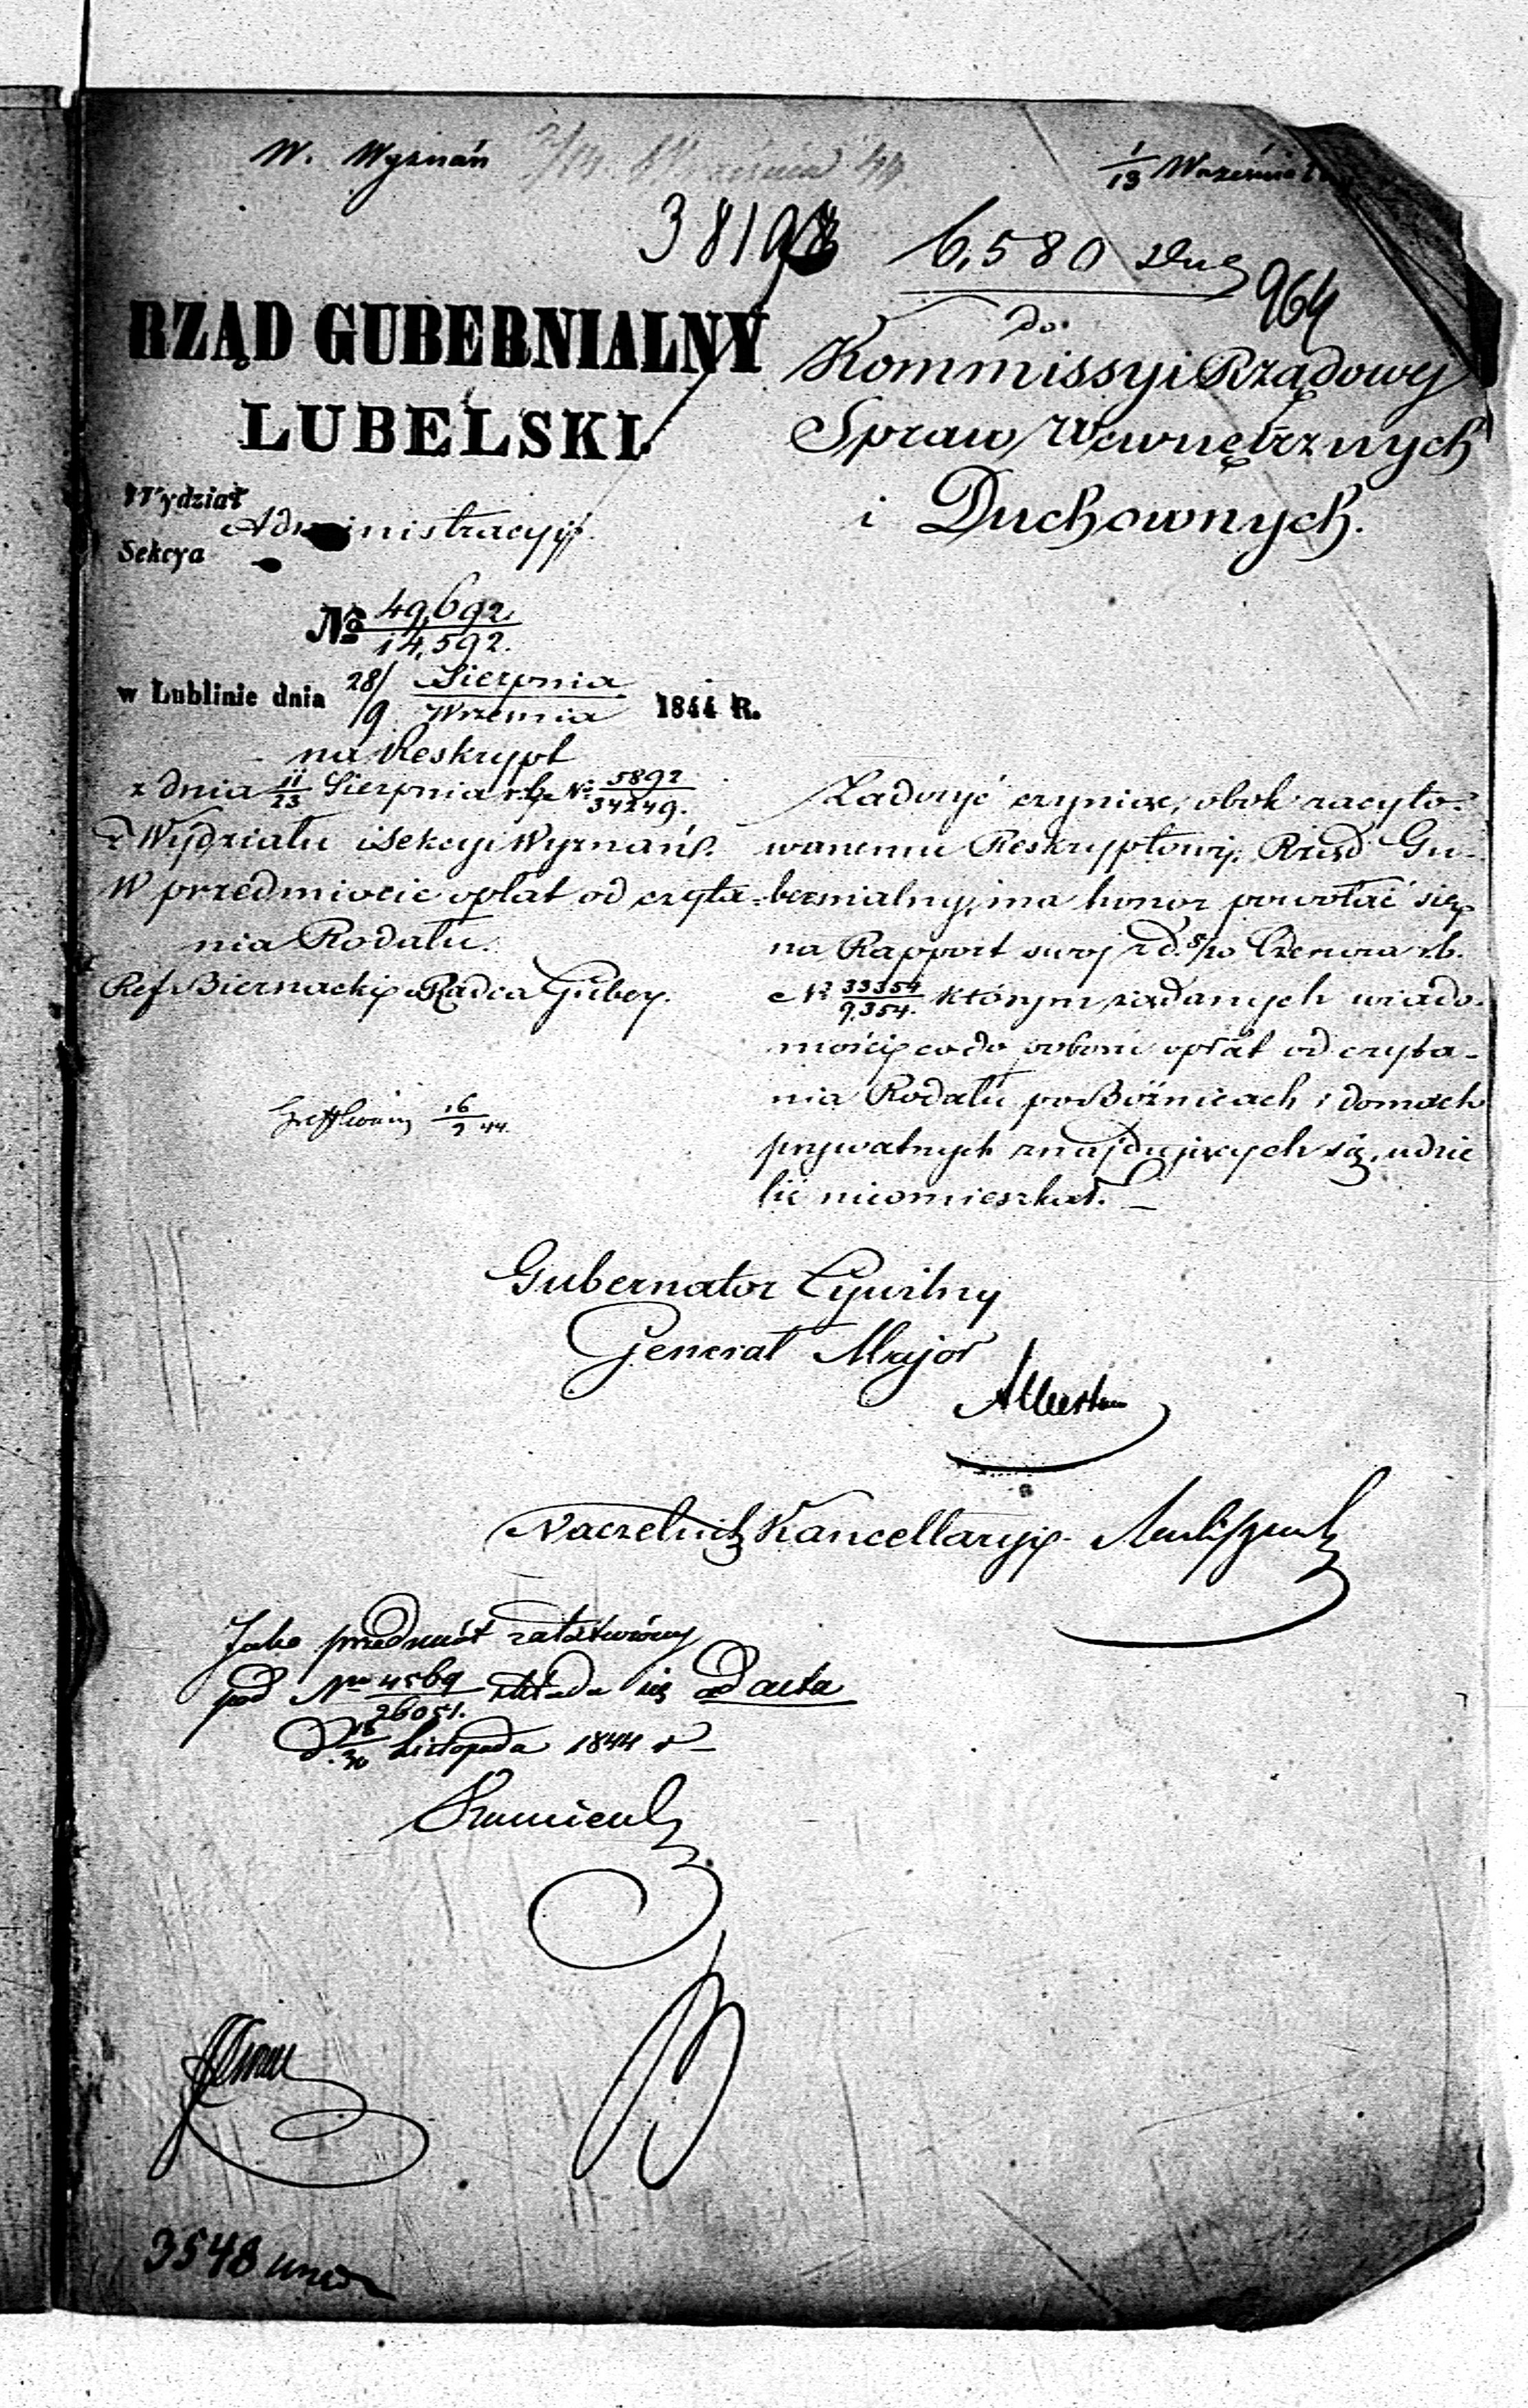 W. Wyznań
1/13 Września
6,580
964
RZĄD GUBERNIALNY
LUBELSKI.
Wydział Administracyjny.
Sekcya
do
Kommissyi Rządowej
Spraw Wewnętrznych
i Duchownych.
No 49,692/14,592.
w Lublinie dnia 28/9 Sierpnia/Września 1844 R.
na Reskrypt
z dnia 11/23 Sierpnia r. b. No 5892/34249.
z Wydziału i Sekcyi Wyznań.
W przedmiocie opłat od czyta-
nia Rodału.
Ref. Biernacki Radca Guber.
16/9 44.
Zadosyć czyniąc, obok zacyto-
wanemu Reskryptowi, Rząd Gu-
bernialny, ma honor powołać się
na Rapport swój z d. 8/20 Czerwca r. b.
No 33354/9,354. którym żądanych wiado-
mości co do poboru opłat od czyta-
nia Rodału po Bóźnicach i domach
prywatnych znajdujących się, udzie
lić nieomieszkał. —
Gubernator Cywilny
Generał Major
Naczelnik Kancellaryi
Jako przedmiot załatwiony
pod No 4569/26051. składa się ad acta
D. 18/30 Listopada 1844 r
3548